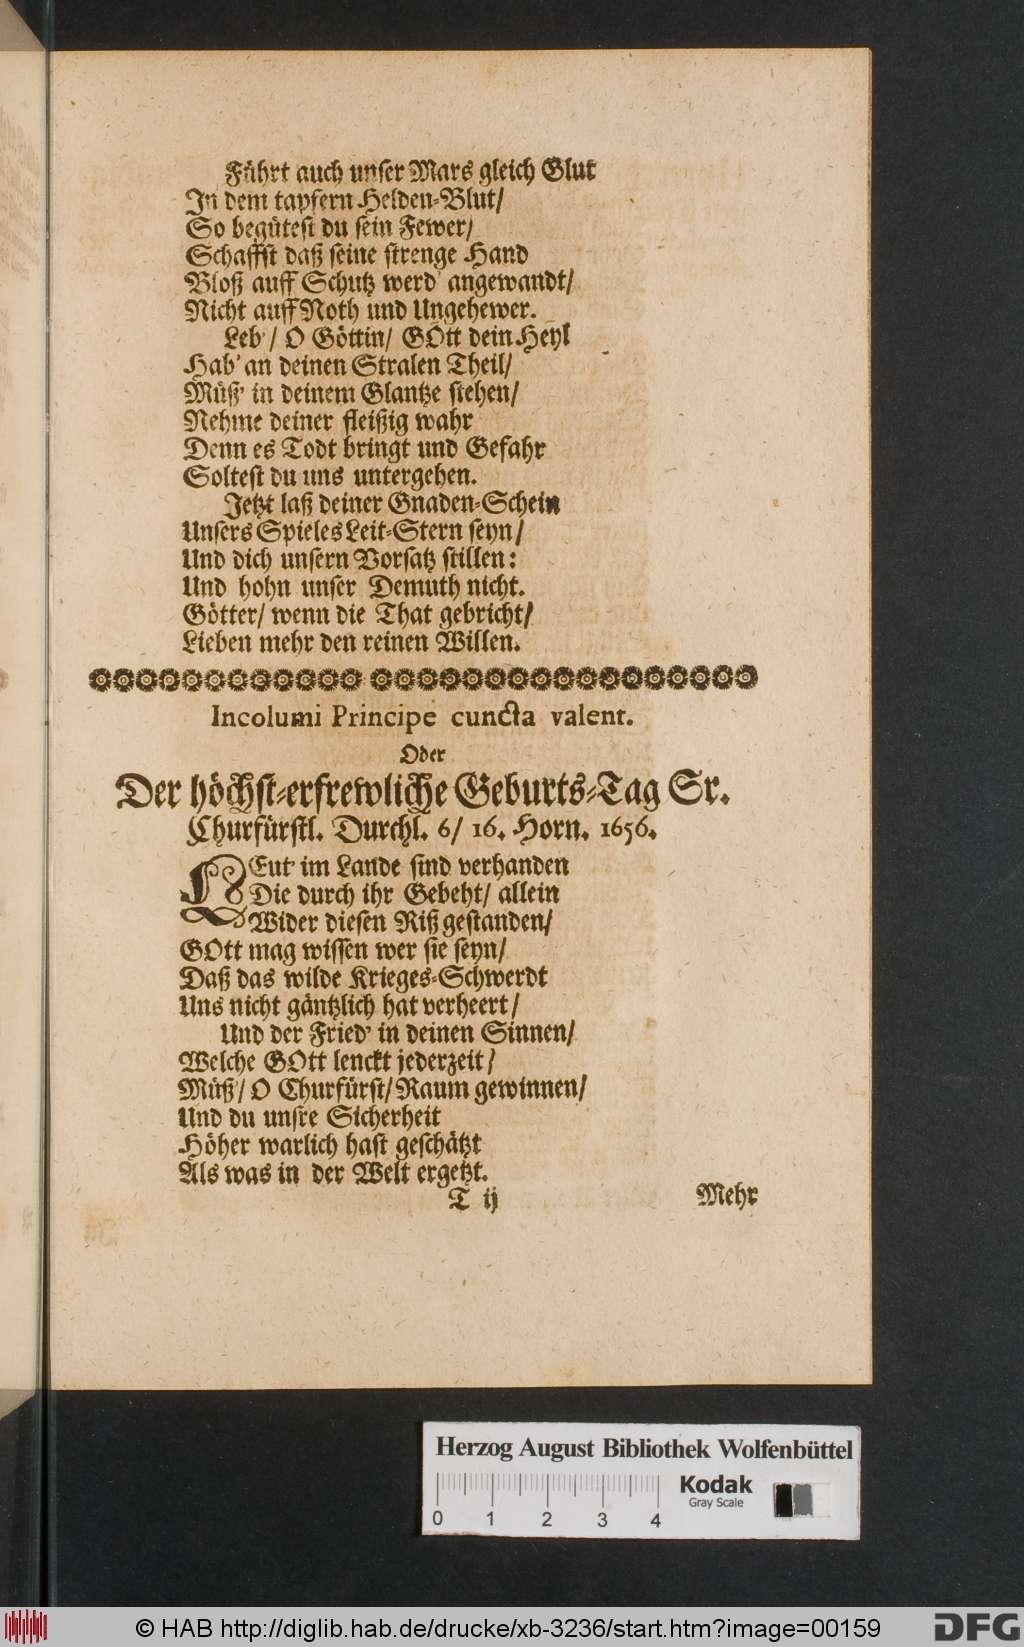 Führt auch unser Mars gleich Glut
In dem tapfern Helden-Blut/
So begütest du sein Fewer/
Schaffst daß seine strenge Hand
Bloß auff Schutz werd' angewandt/
Nicht auff Noth und Ungehewer.
Leb'/ O Göttin/ GOtt dein Heyl
Hab' an deinen Stralen Theil/
Müß' in deinem Glantze stehen/
Nehme deiner fleißig wahr
Denn es Todt bringt und Gefahr
Soltest du uns untergehen.
Jetzt laß deiner Gnaden-Schein
Unsers Spieles Leit-Stern seyn/
Und dich unsern Vorsatz stillen:
Und hohn unser Demuth nicht.
Götter/ wenn die That gebricht/
Lieben mehr den reinen Willen.
Incolumi Principe cuncta valent.
Oder
Der höchst-erfrewliche Geburts-Tag Sr.
Churfürstl. Durchl. 6/ 16. Horn. 1656.
LEut' im Lande sind verhanden
Die durch ihr Gebeht/ allein
Wider diesen Riß gestanden/
GOtt mag wissen wer sie seyn/
Daß das wilde Krieges-Schwerdt
Uns nicht gäntzlich hat verheert/
Und der Fried' in deinen Sinnen/
Welche GOtt lenckt jederzeit/
Müß'/ O Churfürst/ Raum gewinnen/
Und du unsre Sicherheit
Höher warlich hast geschätzt
Als was in der Welt ergetzt.
T ij Mehr
Herzog August Bibliothek Wolfenbüttel
Kodak
Gray Scale
0 1 2 3 4
© HAB http://diglib.hab.de/drucke/xb-3236/start.htm?image=00159
DFG